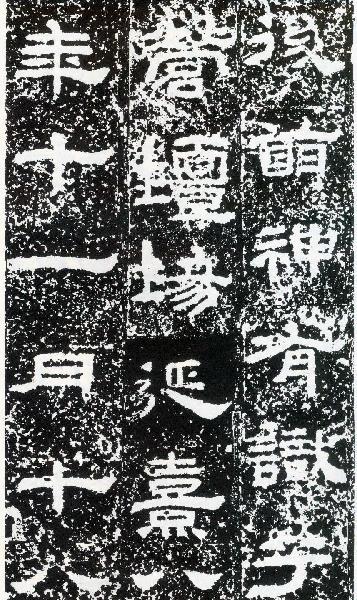 後萌神有識兮
營壇場延熹八
年十一月十八